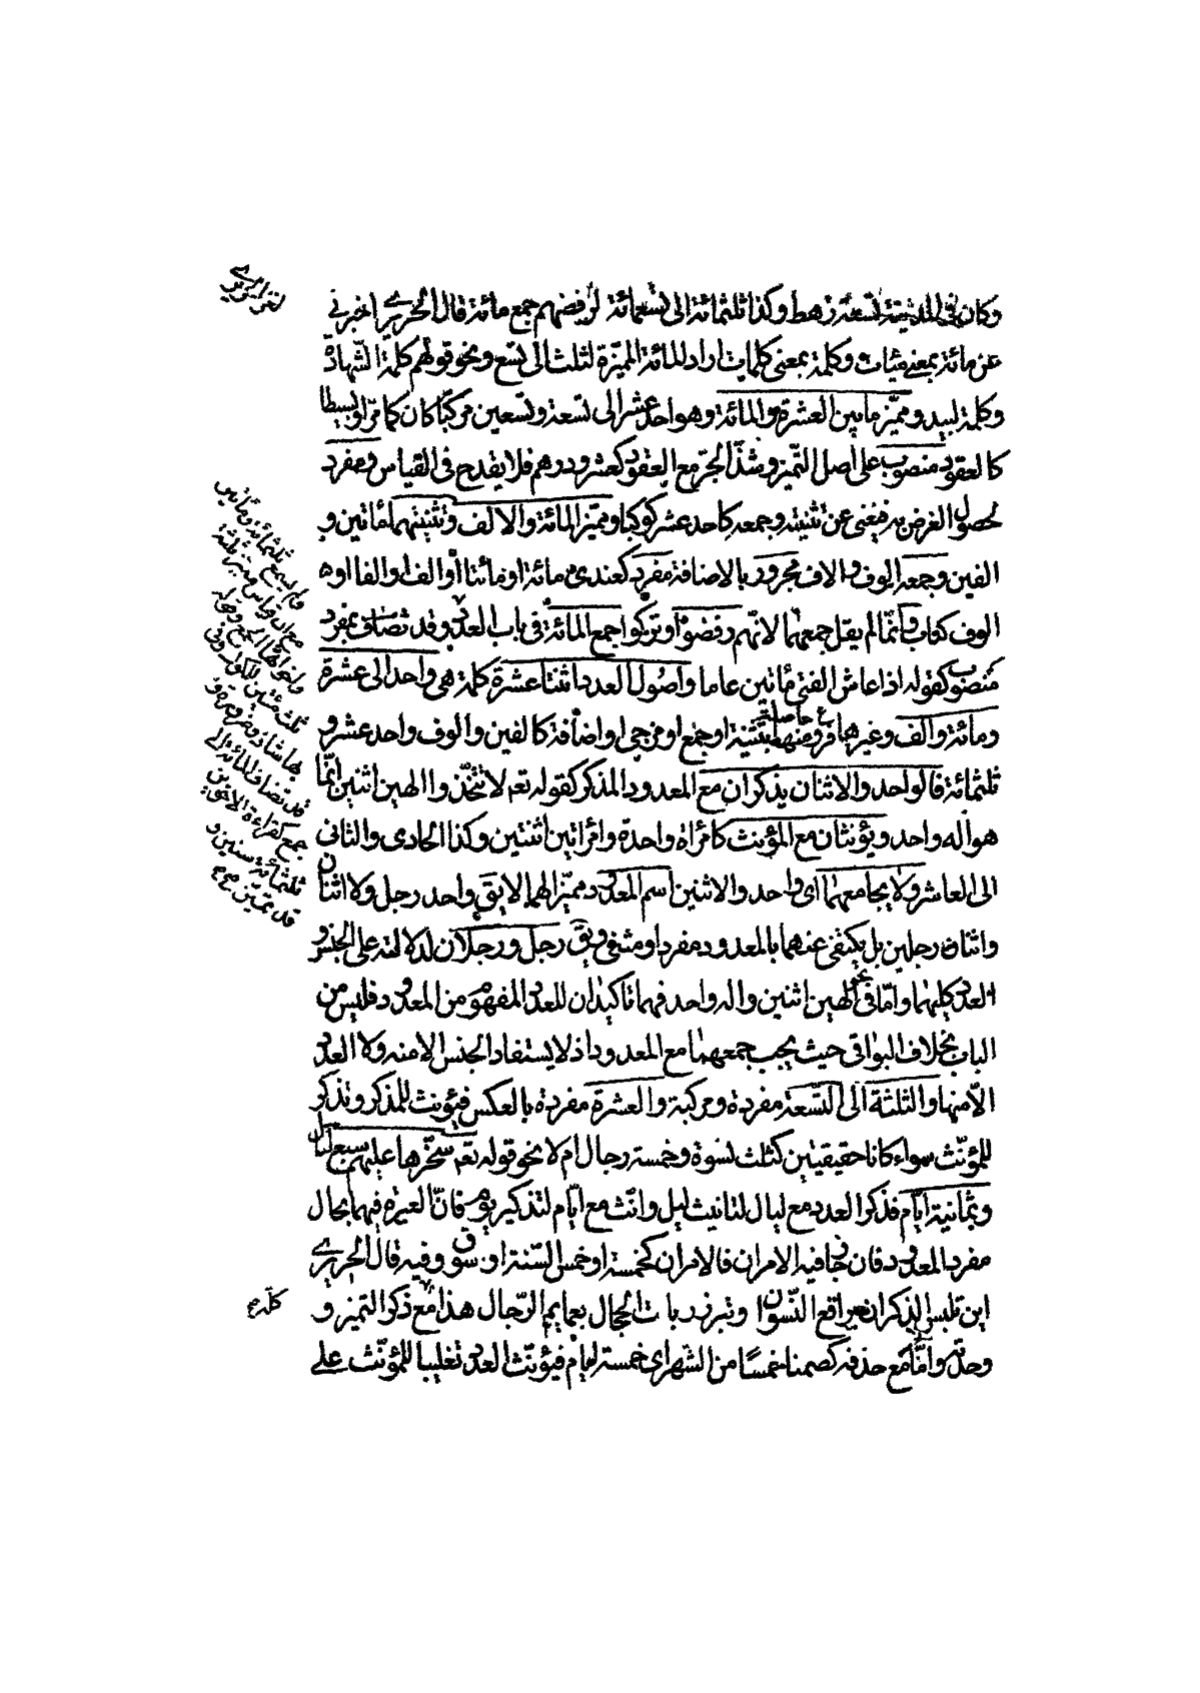 وكان فى المدينة تسعة رهط وكذا ثلثمائة الى تسعمائة لرفضهم جمع مائة قال الحريرى اخبرنى
عن مائة بمعنى مئات وكلمة بمعنى كلمات اراد المائة المميّزة لثلث الى تسع ونحو قولهم كلمة الشّهادة
وكلمة لبيد ومميّز ما بين العشرة والمائة وهو احد عشر الى تسعة وتسعين مركبا كان كما مرّ او بسيطا
كالعقود منصوب على اصل التّميز وشذّ الجرّ مع العقود كعشرو درهم فلا يقدح فى القياس ومفرد
لحصول الغرض به فيغنى عن تثنيته وجمعه كاحد عشر كوكبا ومميّز المائة والالف وتثنيتهما مأتين و
الفين وجمعه الوف والاف مجرور بالاضافة مفرد كعندى مائة او مائتا او الف او الفا او
الوف كتاب وانّما لم يقل جمعهما لانّهم رفضوا وتركوا جمع المائة فى باب العدد وقد تضاف بمفرد
منصوب كقوله اذا عاش الفتى مأتين عاما واصول العدد اثنتا عشرة كلمة هى واحد الى عشرة
ومائة والف وغيرها فروع منها حاصلة بتثنية او جمع او مزجى او اضافة كالفين والوف واحد عشر و
ثلثمائة فالواحد والاثنان يذكران مع المعدود المذكر كقوله تعم لا تتّخذوا الهين اثنين انّما
هو اله واحد ويؤنثان مع المؤنث كامرأة واحدة وامرأتين اثنتين وكذا الحادى والثانى
الى العاشر ولا يجامعهما اى واحد والاثنين اسم المعدود مميّزا لهما لا يق واحد رجل ولا اثنان
واثنان رجلين بل يكتفى عنهما بالمعدود مفردا ومثنى ويق رجل ورجلان لدلالته على الجنس و
العدد كليهما وامّا فى نحو الهين اثنين واله واحد فهما تاكيدان للعدد المفهوم من المعدود فليس من
الباب بخلاف البواقى حيث يجب جمعهما مع المعدود اذ لا يستفاد الجنس الا منه ولا العدد
الاّ منها والثلثة الى التّسعة مفردة ومركبة والعشرة مفردة بالعكس فيؤنث للمذكر وتذكر
للمؤنّث سواء كانا حقيقيين كثلث نسوة وخمسة رجال ام لا نحو قوله تعم سخّرها عليهم سبع ليال
وثمانية ايّام فذكر العدد مع ليال لتانيث ليل وانّث مع ايّام لتذكير يوم فانّ العبرة فيهما بحال
مفرد المعدود فان جا فيه الامران فالامران كخمسة او خمس السنة او سوق وفيه قال الحريرى
اين تلبس الذكران براقع النّسوان وتبرز ربات الحجال بعمايم الرّجال هذا مع ذكر التميز و
وحدته وامّا مع حذفه كصمنا خمسا من الشّهر اى خمسة ايام فيؤنّث العدد تغليبا للمؤنّث على
ثلثمائة
مع ان قياس
قد تضاف المائة الى
جمع كقراءة الاخوين
ثلثمائة سنين و